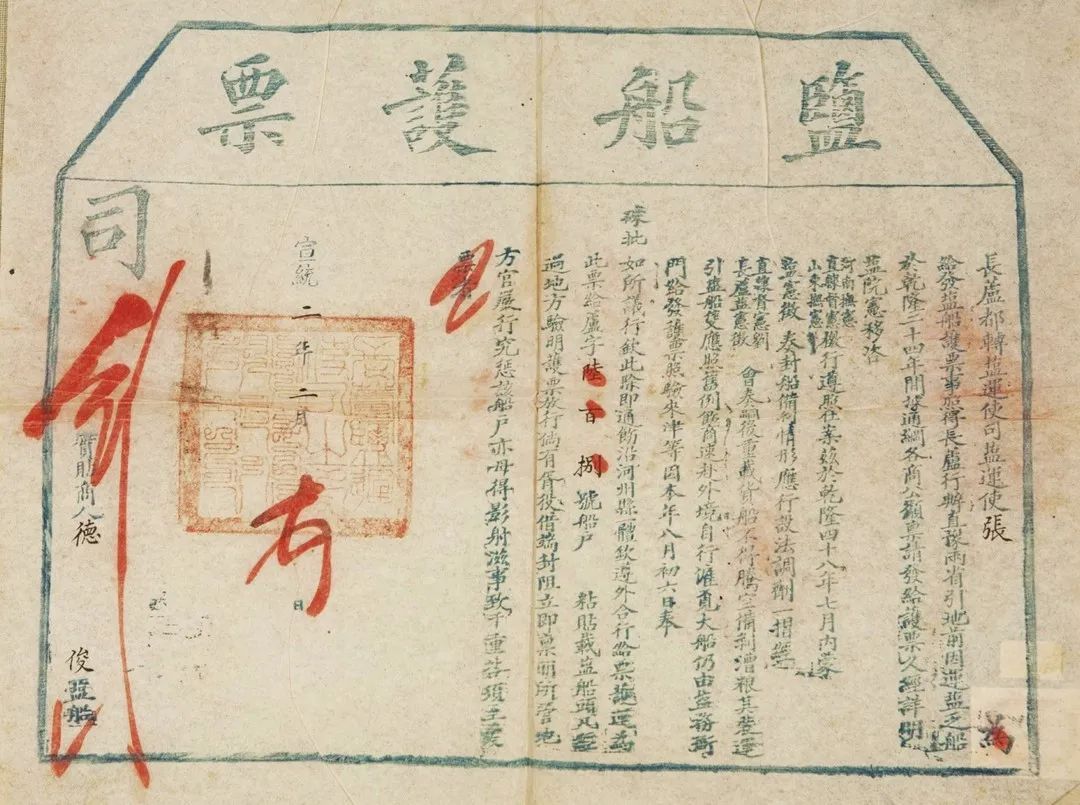 鹽船護票
長蘆都轉鹽運使司鹽運使張 為
給發鹽船護票事照得長蘆行辦直豫兩省引地前因運鹽之船
於乾隆二十四年間據通綱各商公籲稟請發給護票久經詳明
鹽院憲移咨
河南撫憲
直隸督憲
山東撫憲
檄行遵照在案茲於乾隆四十八年七月內蒙
鹽憲徵 奏封船備剝情形應行設法調劑一摺
直隸督憲劉
長蘆鹽憲徵
會奏嗣後重載貨船不得騰空備剝漕糧其裝運
引鹽船隻應照舊例飭商速赴外境自行雇覓大船仍由鹽務衙
門給發護票照驗來津等因本年八月初六日奉
硃批
如所議行欽此除即通飭沿河州縣一體欽遵外合行給票護運為
此票給蘆字陸百捌號船戶 粘貼載鹽船頭凡經
過地方驗明護票放行倘有胥役借端封阻立即稟明所管地
方官嚴行究懲該船戶亦毋得影射滋事致干重咎須至票
票者
宣統二年二月 日
右
實貼商人德 俊鹽船
司